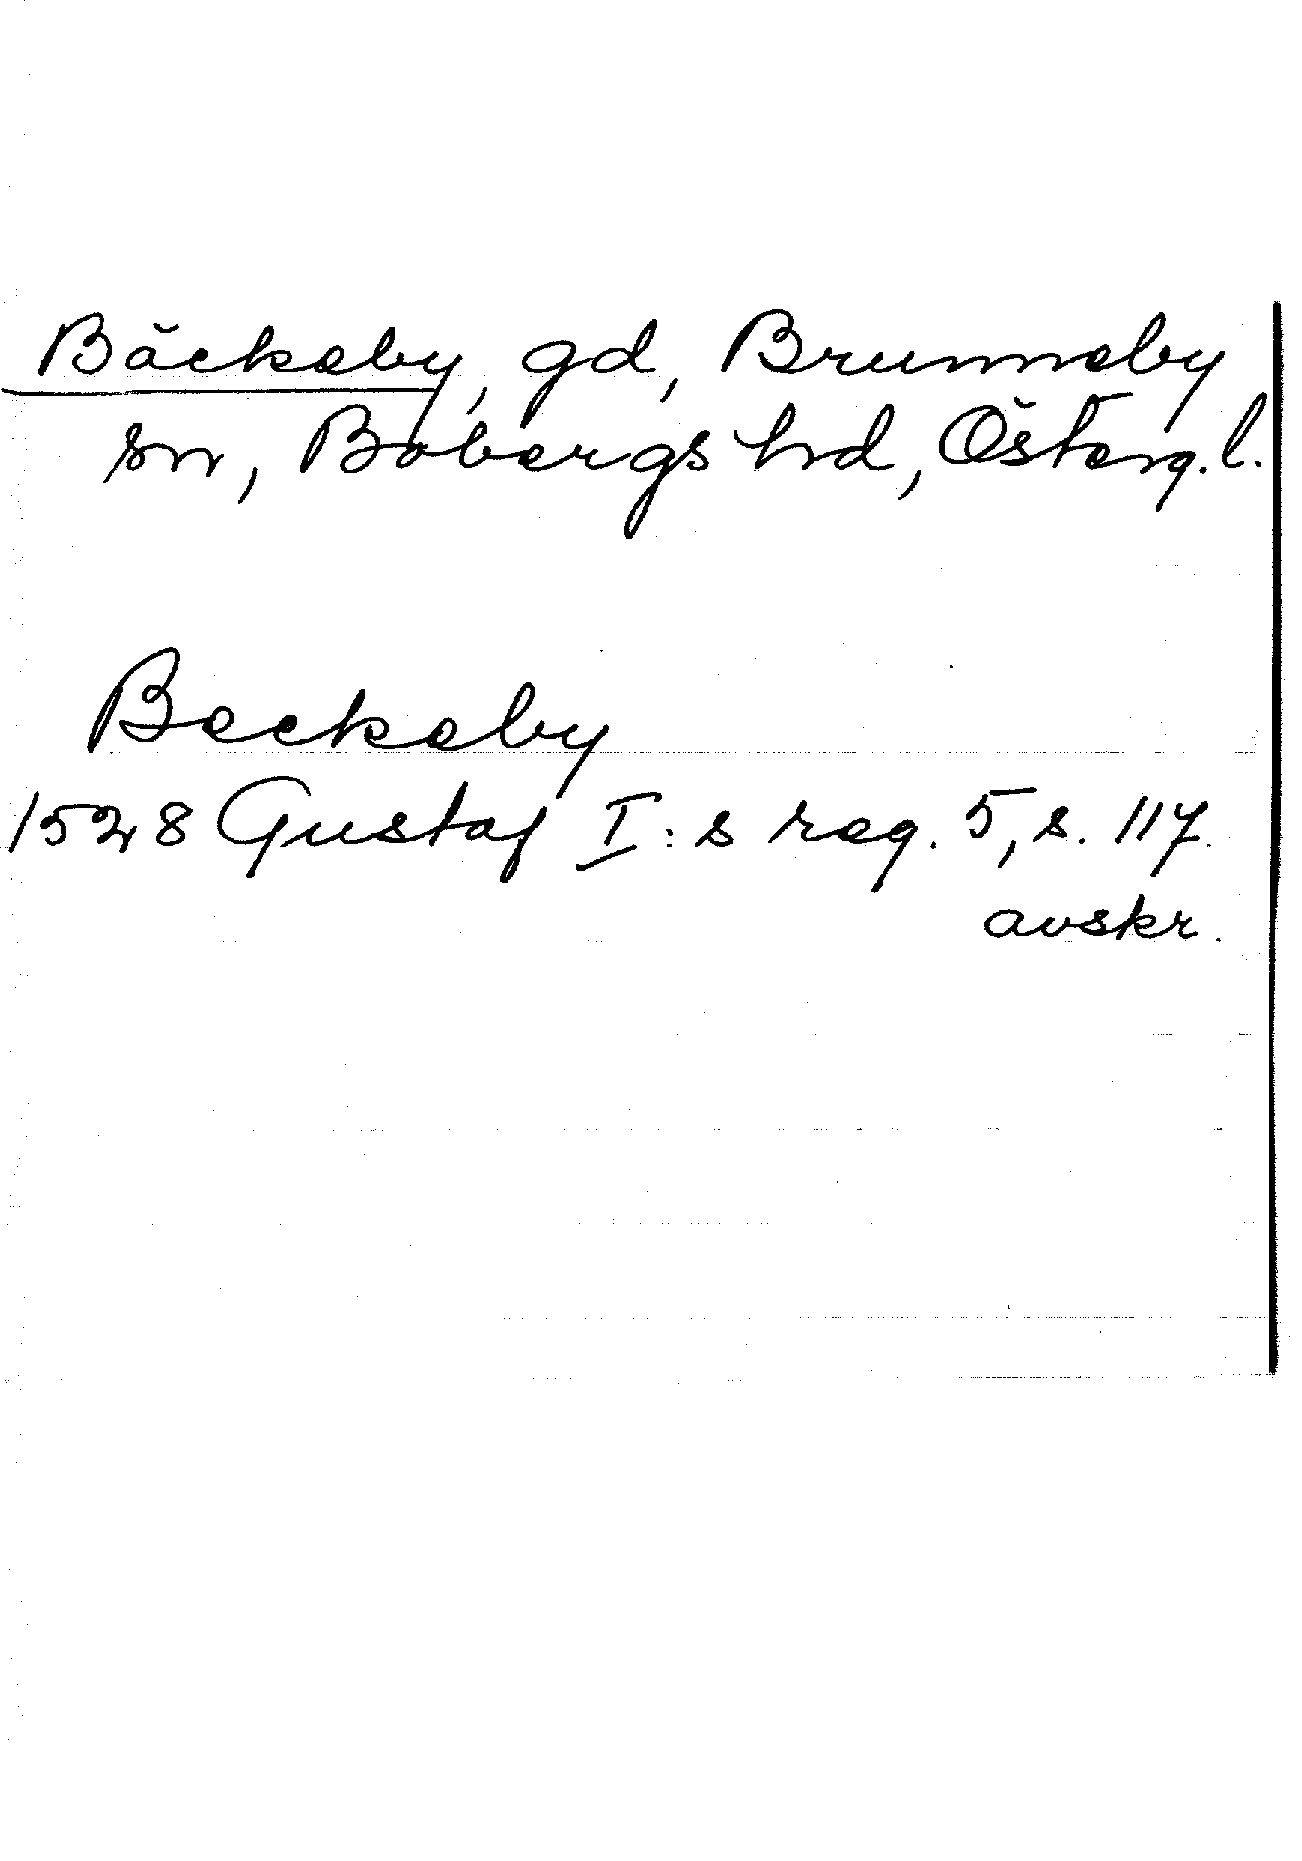 Bäckeby, gd, Brunneby
sn, Bobergs hd, Österg. l.
Beckeby
1528 Gustaf I:s reg. 5, s. 117.
avskr.